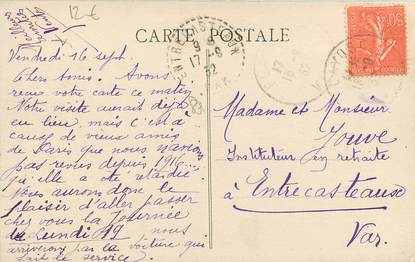 12€
CARTE POSTALE
ENTRECASTEAUX
VAR
17-9
32
50c
Vendredi 16 sept.
Chers Amis. Avons
reçu votre carte ce matin
Notre visite aurait déjà
eu lieu, mais c'est à
cause de vieux amis
de Paris que nous n'avions
pas revus depuis 1916
qu'elle a été retardée
Nous aurons donc le
plaisir d'aller passer
chez vous la journée
du Lundi 19 nous
arriverons par la voiture qui
fait le service.
Madame et Monsieur
Jouve
Instituteur en retraite
à Entrecasteaux
Var.